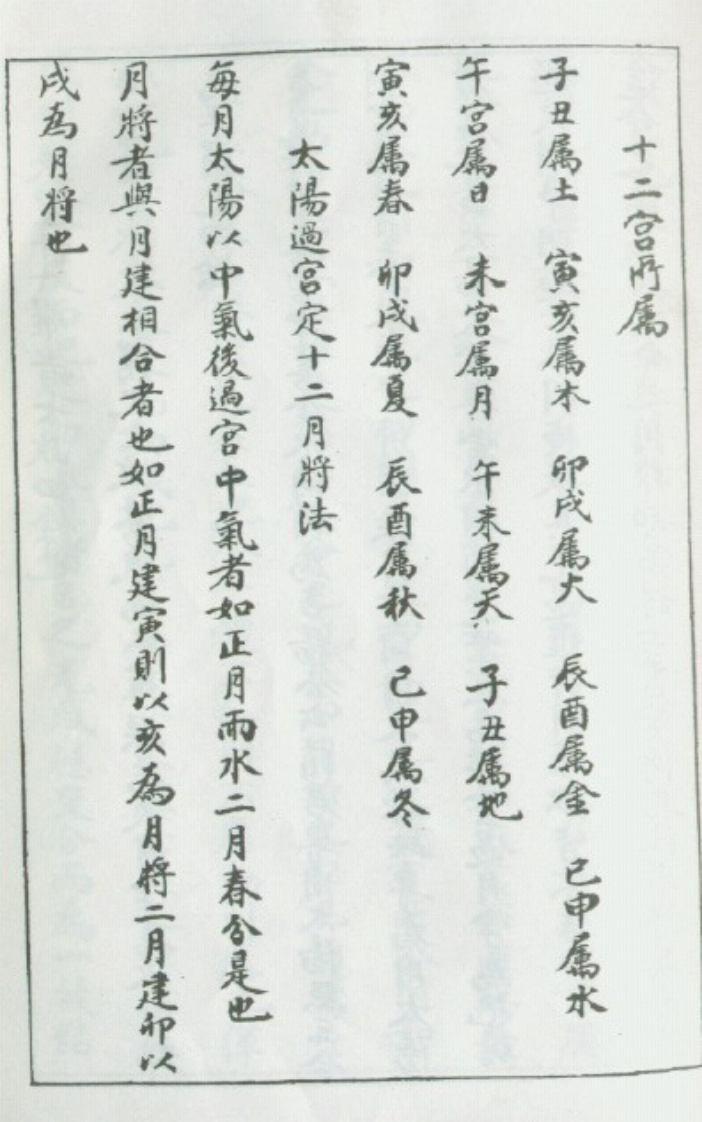 十二宫所属
子丑属土 寅亥属木 卯戌属火 辰酉属金 巳申属水
午宫属日 未宫属月 午未属天 子丑属地
寅亥属春 卯戌属夏 辰酉属秋 巳申属冬
太陽過宫定十二月將法
每月太陽以中氣後過宫中氣者如正月雨水二月春分是也
月將者與月建相合者也如正月建寅則以亥為月將二月建卯以
戌為月將也